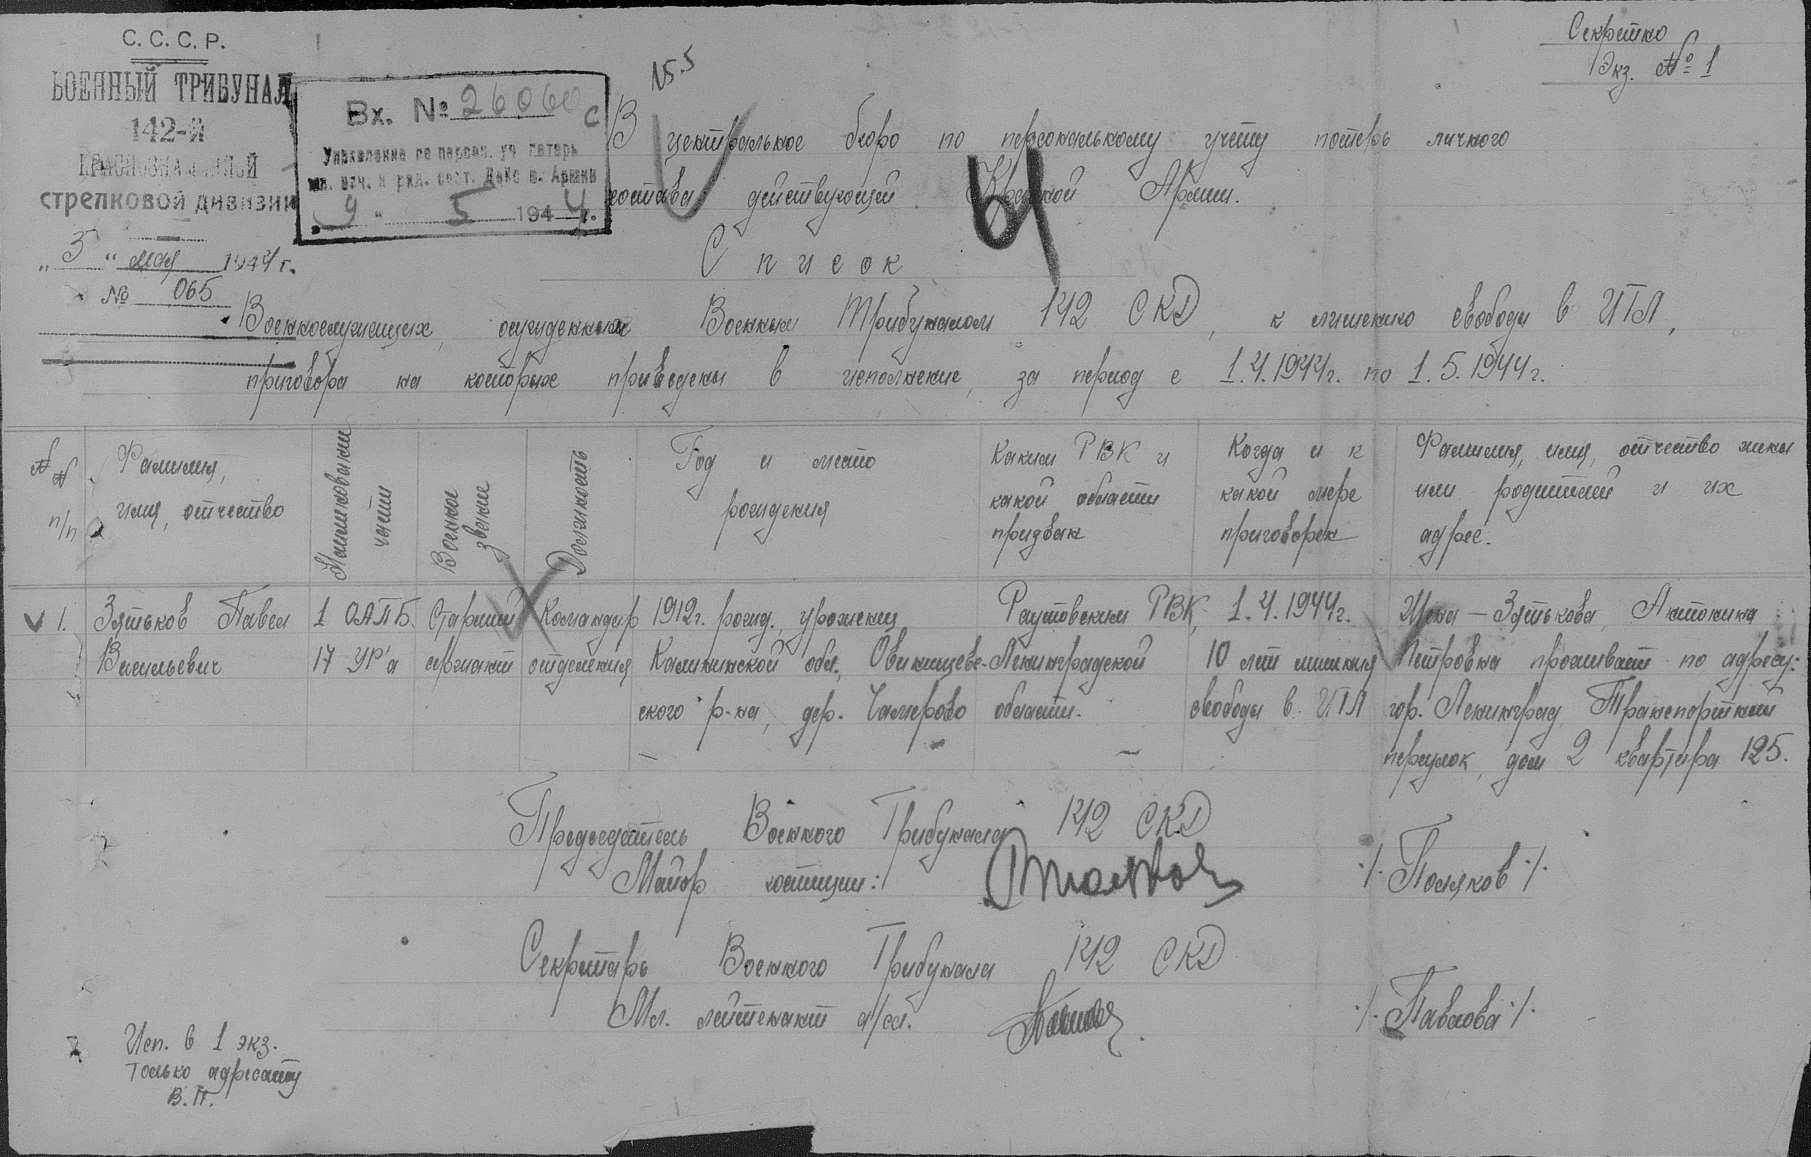 Секретно
Экз. № 1
С. С. С. Р.
ВОЕННЫЙ ТРИБУНАЛ
142-й
КРАСНОЗНАМЕННОЙ
стрелковой дивизии
„3“ мая 1944 г.
№ 065
Вх. № 26060 с
Управление по персон. уч. потерь
мл. нач. и ряд. сост. Дейс в. Армии
„9“ 5 1944 г.
В центральное бюро по персональному учёту потерь личного
состава действующей Красной Армии.
Список
Военнослужащих, осужденных Военным Трибуналом 142 СКД, к лишению свободы в ИТЛ,
приговора на которых приведены в исполнение, за период с 1.4.1944г. по 1.5.1944г.
№№ п/п
Фамилия, имя, отчество
Наименование части
Военное звание
Должность
Год и место рождения
Каким РВК и какой области призван
Когда и к какой мере приговорен
Фамилия, имя, отчество жены или родителей и их адрес.
1. Зятьков Павел 1 ОАПБ Старший Командир 1912г. рожд., уроженец Раутовским РВК, 1.4.1944г. Жена — Зятькова, Антонина
Васильевич 17 УР'а сержант отделения Калининской обл., Овинищев- Ленинградской 10 лет лишения Петровна проживает по адресу:
ского р-на, дер. Чамерово области. свободы в ИТЛ гор. Ленинград Транспортный
переулок, дом 2 квартира 125.
Председатель Военного Трибунала 142 СКД
Майор юстиции: /Поляков/
Секретарь Военного Трибунала 142 СКД
Мл. лейтенант а/сл. /Павлова/
Исп. в 1 экз.
только адресату
В.П.